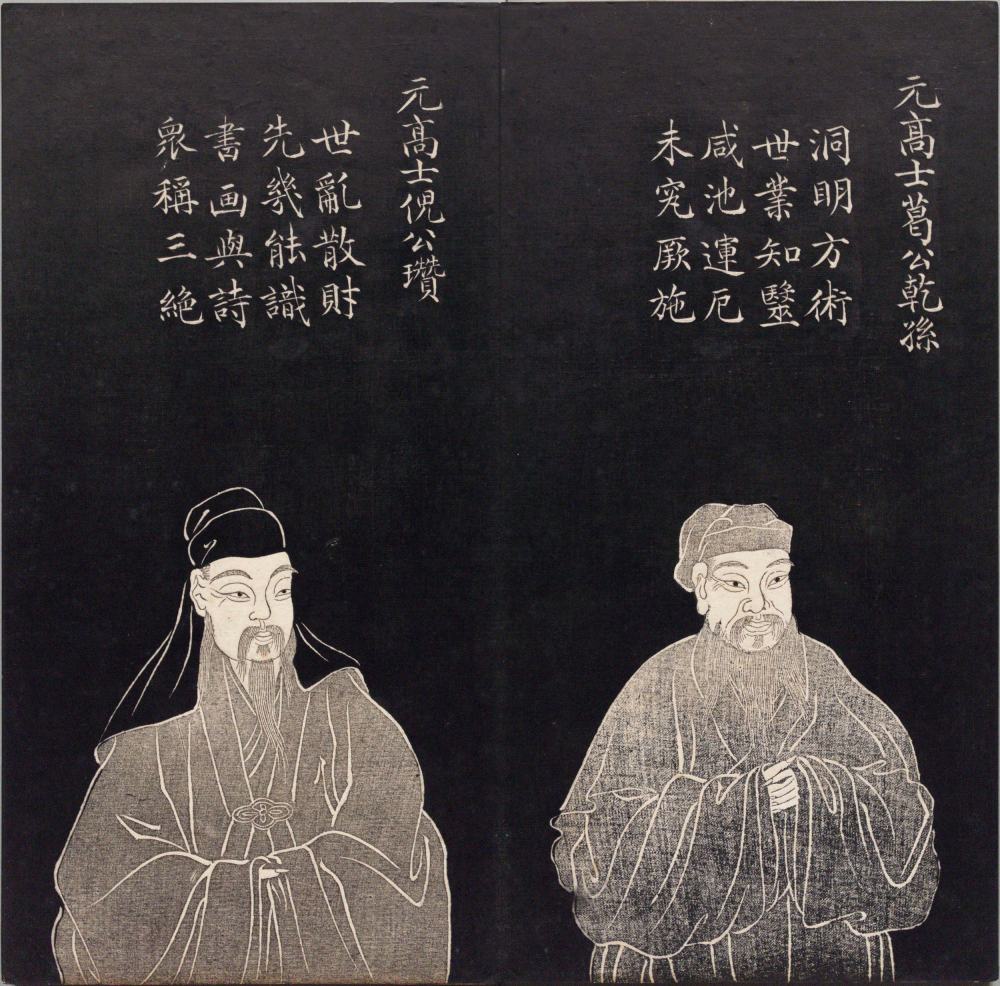 元高士葛公乾孫
洞明方術
世業知毉
咸池運厄
未究厥施
元高士倪公瓚
世亂散財
先幾能識
書画與詩
衆稱三絶